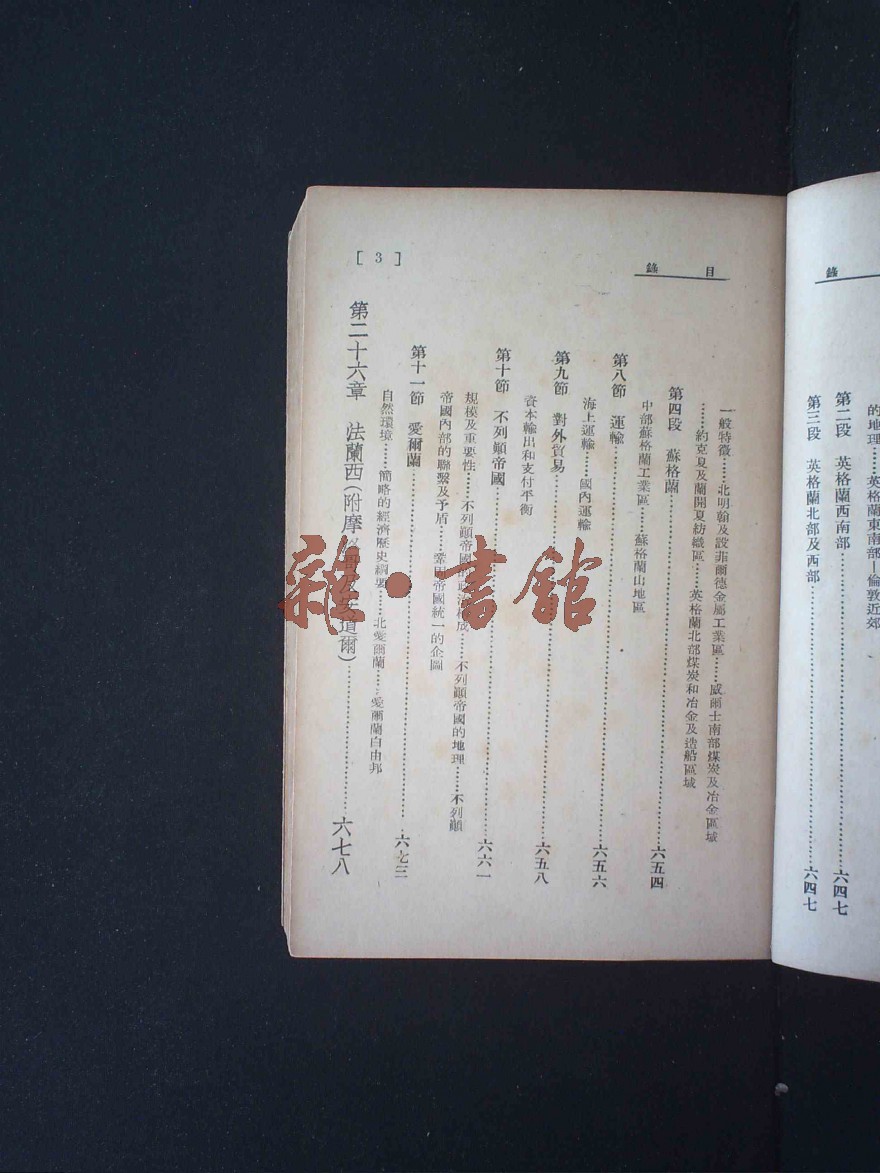 的地理……英格蘭東南部—倫敦近郊
第二段 英格蘭西南部……六四七
第三段 英格蘭北部及西部……六四七
目錄
錄
[3]
一般特徵……北明翰及設菲爾德金屬工業區……威爾士南部煤炭及冶金區域
……約克夏及蘭開夏紡織區……英格蘭北部煤炭和冶金及造船區域
第四段 蘇格蘭……六五四
中部蘇格蘭工業區……蘇格蘭山地區
第八節 運輸……六五六
海上運輸……國內運輸
第九節 對外貿易……六五八
資本輸出和支付平衡
第十節 不列顛帝國……六六一
規模及重要性……不列顛帝國的政治構成……不列顛帝國的地理……不列顛
帝國內部的聯繫及矛盾……鞏固帝國統一的企圖
第十一節 愛爾蘭……六七三
自然環境……簡略的經濟歷史綱要……北愛爾蘭……愛爾蘭自由邦
第二十六章 法蘭西(附摩 道爾)……六七八
雜·書館